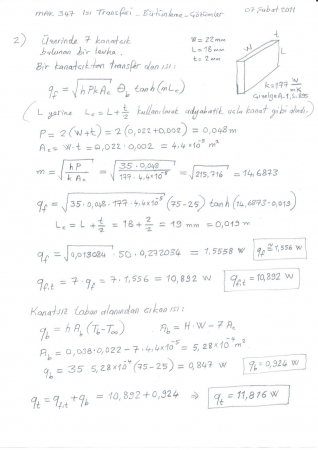 MAK 347 Isı Transferi - Bütünleme - Çözümler 07 Şubat 2011
2) Üzerinde 7 kanatçık
bulunan bir levha.
Bir kanatçıktan transfer olan ısı:
W = 22mm
L = 18mm
t = 2mm
W
t
L
k = 177 W/mK
Çizelge A.1, S.895
q_f = √(hPkA_c) θ_b tanh(mL_c)
(L yerine L_c = L + t/2 kullanılarak adyabatik uçlu kanat gibi alındı.)
P = 2(W+t) = 2(0,022+0,002) = 0,048m
A_c = W·t = 0,022·0,002 = 4.4×10⁻⁵ m²
m = √(hP/kA_c) = √(35·0,048/177·4.4×10⁻⁵) = √215,716 = 14,6873
q_f = √(35·0,048·177·4.4×10⁻⁵) (75-25) tanh(14,6873·0,019)
L_c = L + t/2 = 18 + 2/2 = 19 mm = 0,019 m
q_f = √0,013084 · 50 · 0,272034 = 1,5558 W q_f ≅ 1,556 W
q_f,t = 7·q_f = 7·1,556 = 10,892 W q_f,t = 10,892 W
Kanatsız taban alanından çıkan ısı:
q_b = h A_b (T_b-T_∞) A_b = H·W - 7A_c
A_b = 0,038·0,022 - 7·4.4×10⁻⁵ = 5,28×10⁻⁴ m²
q_b = 35 5,28×10⁻⁴ (75-25) = 0,847 W q_b = 0,924 W
q_t = q_f,t + q_b = 10,892 + 0,924 ⇒ q_t = 11,816 W